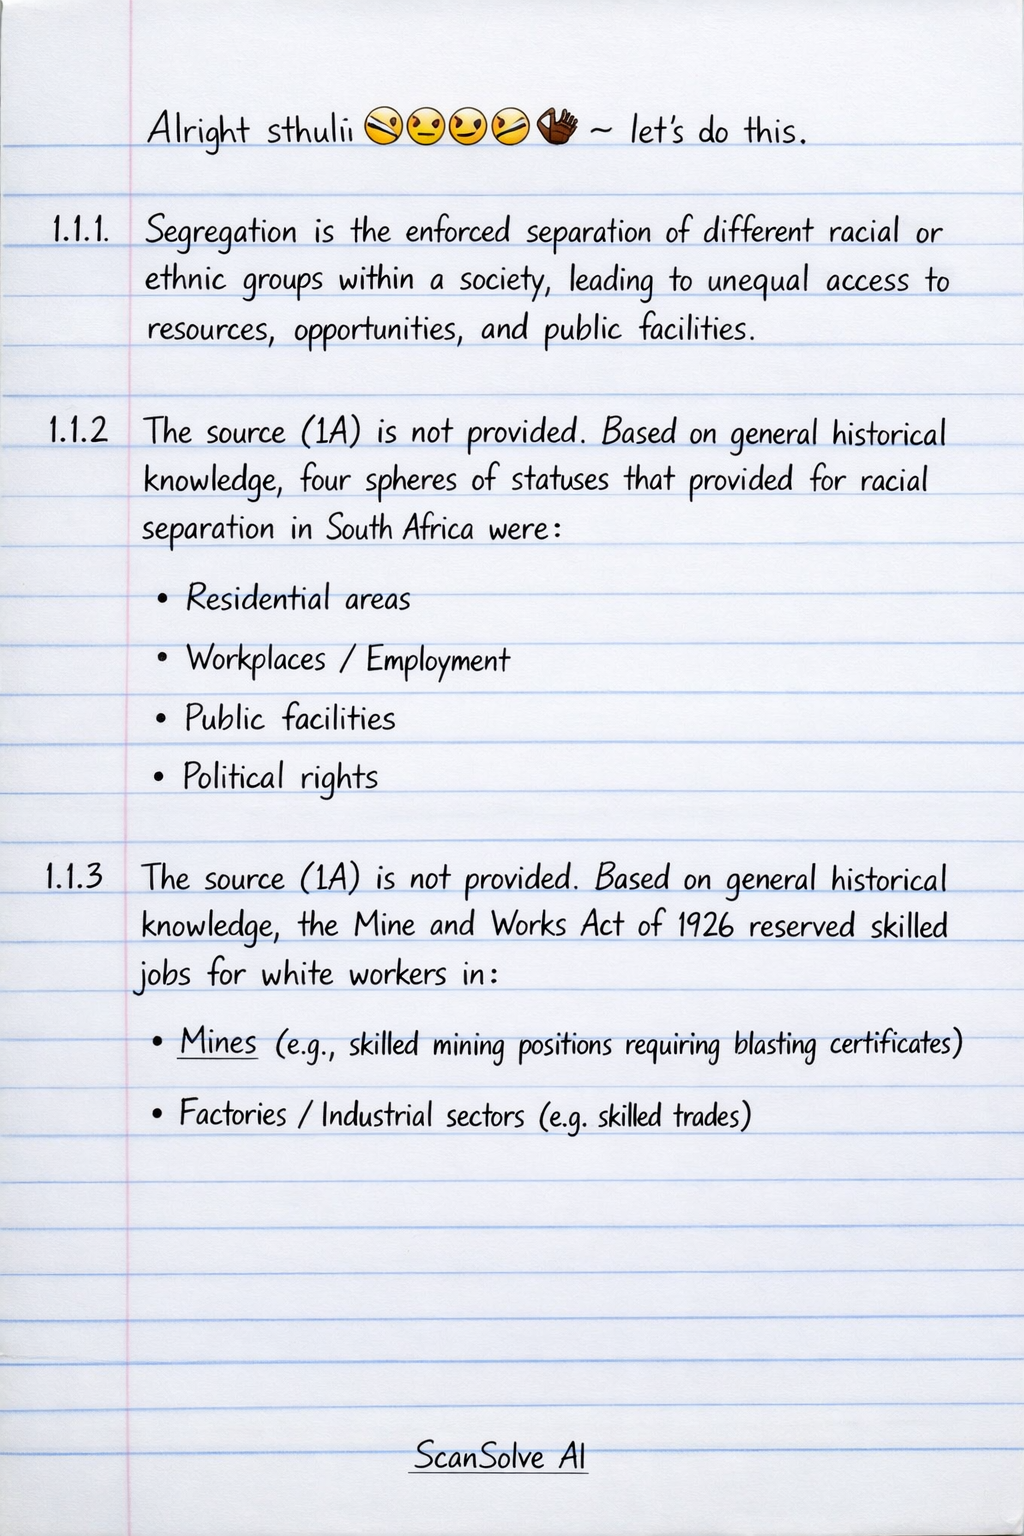 Alright sthulii 😒😒😏😒🤏🏿 ~ let's do this.
1.1.1. Segregation is the enforced separation of different racial or
ethnic groups within a society, leading to unequal access to
resources, opportunities, and public facilities.
1.1.2 The source (1A) is not provided. Based on general historical
knowledge, four spheres of statuses that provided for racial
separation in South Africa were:
• Residential areas
• Workplaces / Employment
• Public facilities
• Political rights
1.1.3 The source (1A) is not provided. Based on general historical
knowledge, the Mine and Works Act of 1926 reserved skilled
jobs for white workers in:
• Mines (e.g., skilled mining positions requiring blasting certificates)
• Factories / Industrial sectors (e.g. skilled trades)
ScanSolve AI